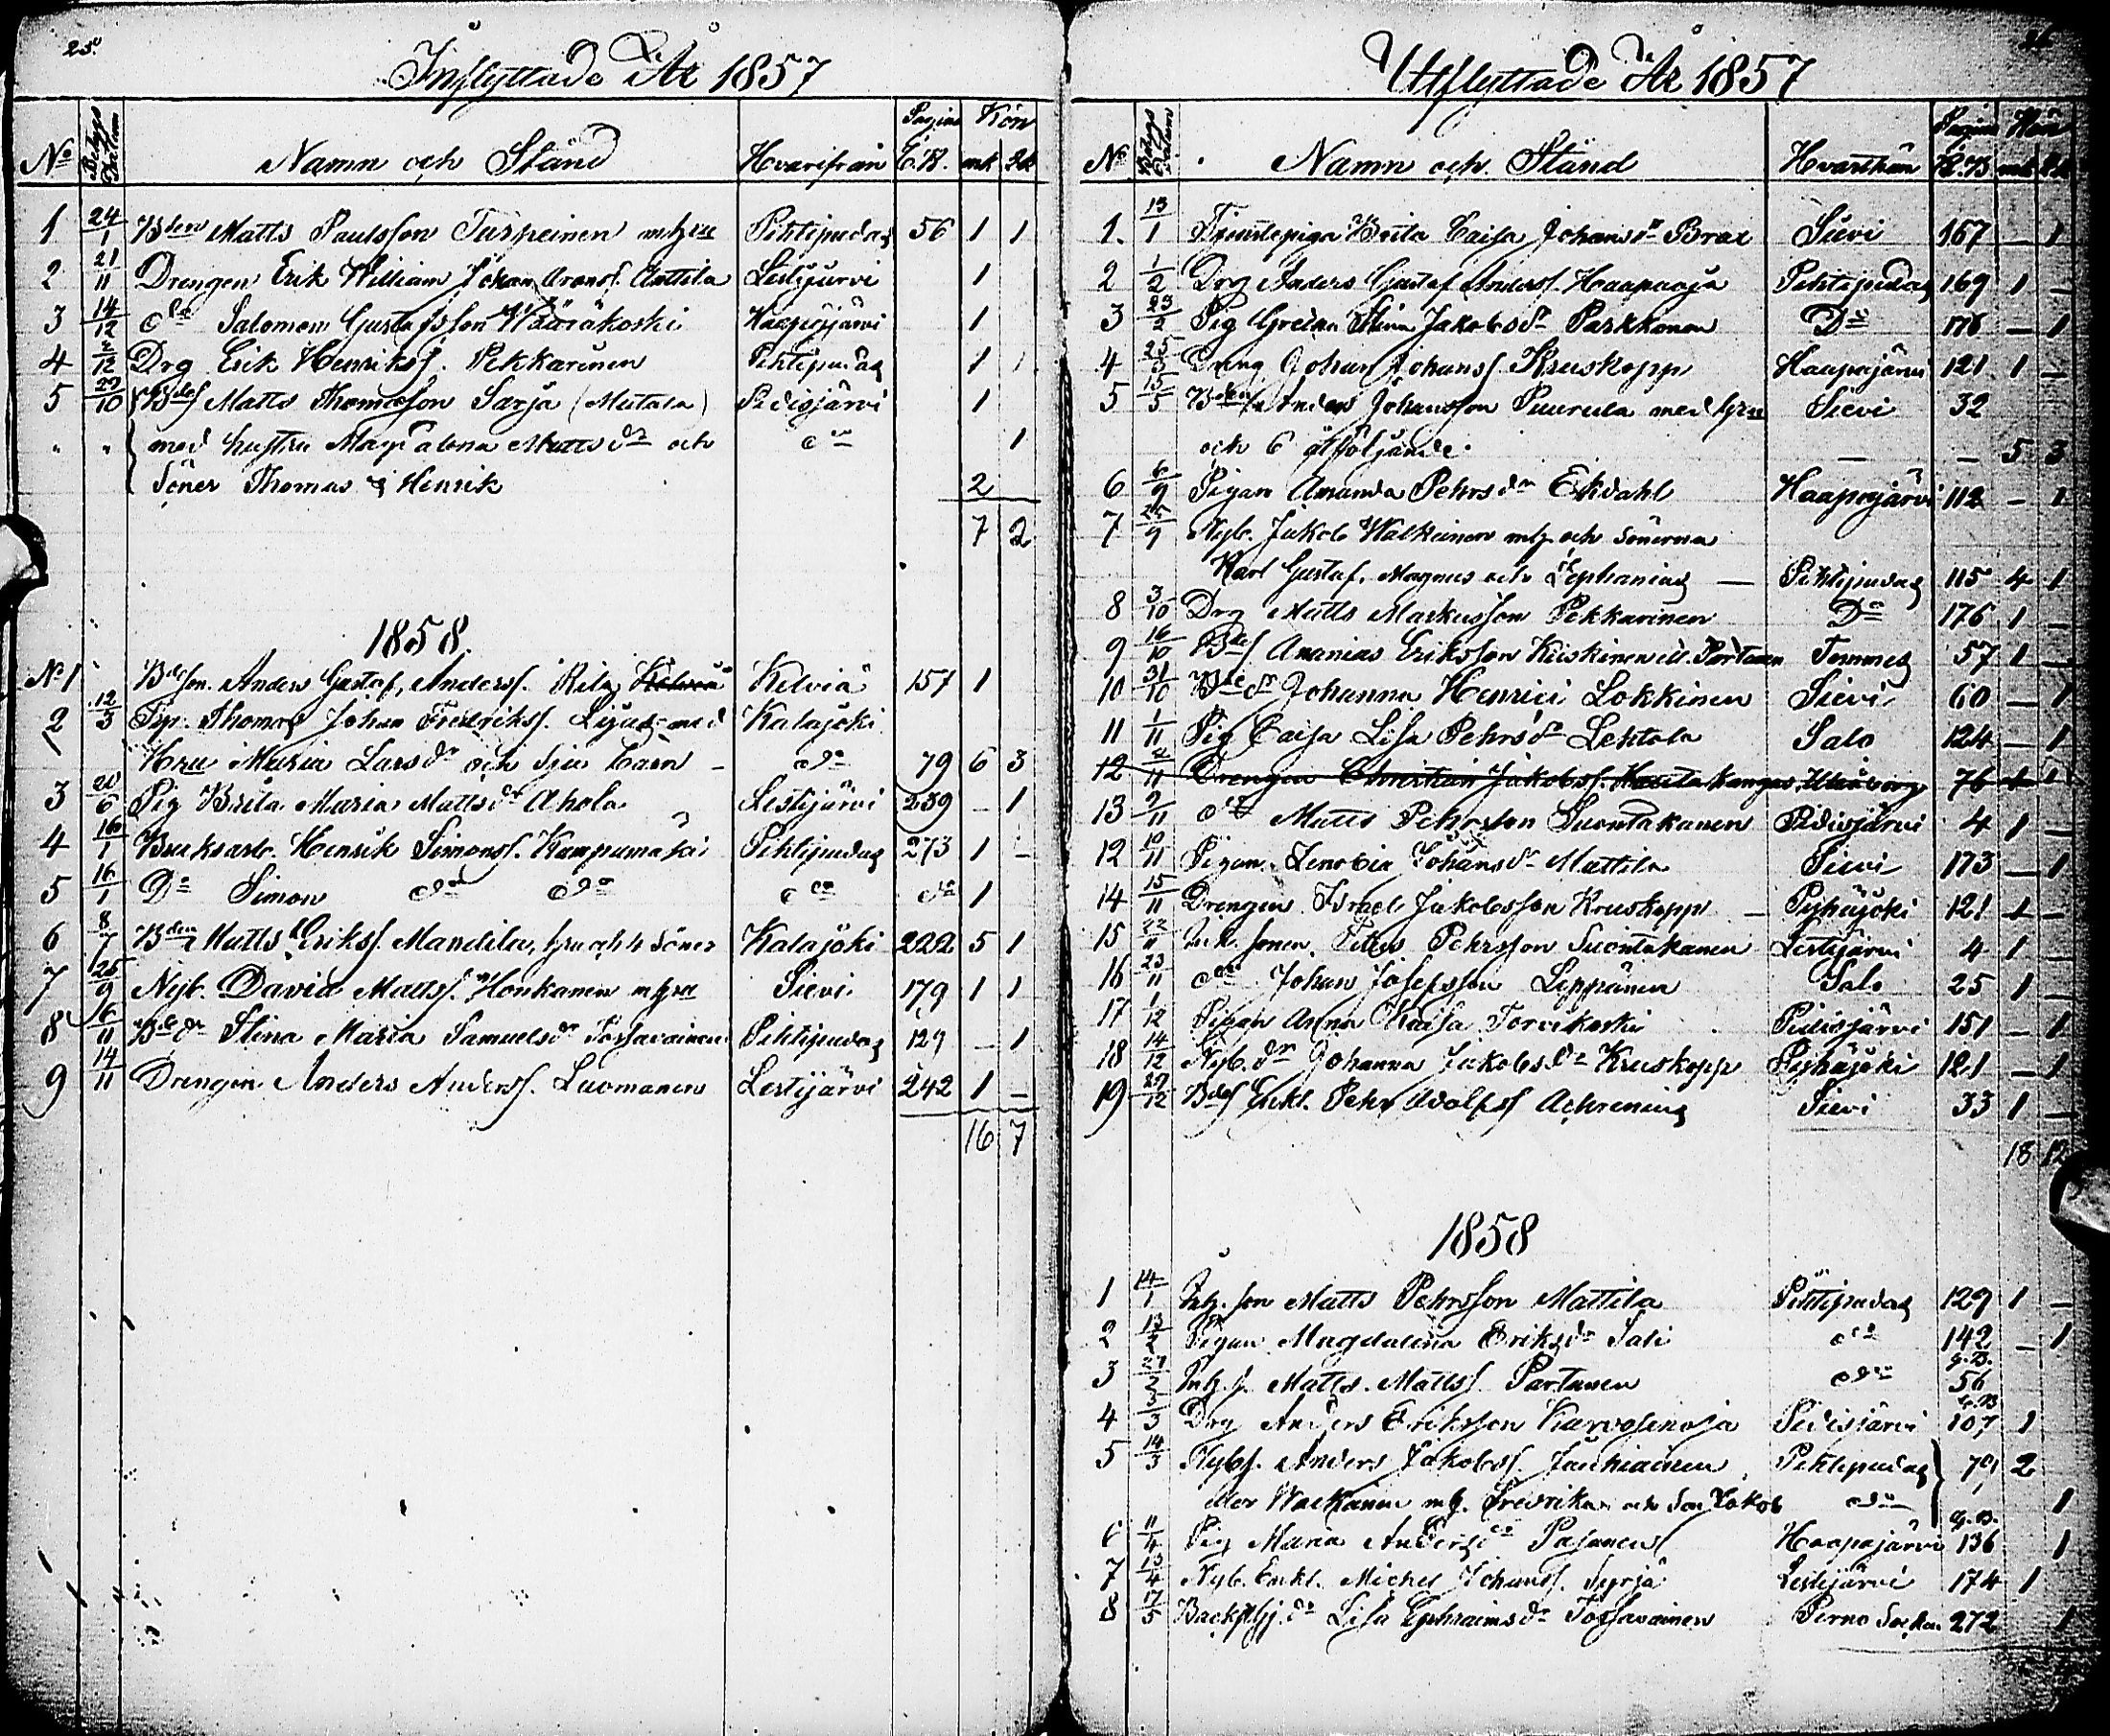 25.
Inflyttade År 1857
No Betygs Datum Namn och Stånd Hvarifrån Pagina K.B. Kön mk qk
1 24/1 Bden Matts Paulsson Turpeinen m hru Pihtipudas 56 1 1
2 21/11 Drengen Erik William Johan Aronss. Anttila Lestijärvi 1
3 14/12 do Salomon Gustafsson Wääräkoski Haapajärvi 1
4 12 Drg Erik Henrikss. Pekkarinen Pihtipudas 1
5 29/10 Bdes Matts Thomasson Sarja (Mutala) Pidisjärvi 1
" " med hustru Magdalena Mattsdr och do 1
Söner Thomas & Henrik 2
7 2
1858.
No 1 Bdeson. Anders Gustaf, Anderss. Rita Kelviä Kelviä 157 1
2 12/3 Tp. Thomas Johan Fredrikss. Ljus med Kalajoki
Hru Maria Larsdr och sju barn - do 79 6 3
3 20/6 Pig Brita Maria Mattsdr Ahola Lestijärvi 239 - 1
4 16/1 Bruksarb. Henrik Simonss. Kumpumäki Pihtipudas 273 1 -
5 16/1 Do Simon do do do do 1
6 8/7 Bden Matts Erikss. Mandila, hru och 4 söner Kalajoki 222 5 1
7 25/9 Nyb. David Mattss. Honkanen m hru Sievi 179 1 1
8 16/11 Bdedr Stina Maria Samuelsdr Tossavainen Pihtipudas 129 - 1
9 14/11 Drengen Anders Anderss. Luomanen Lestijärvi 242 1 -
16 7
26
Utflyttade År 1857
No Betygs Datum Namn och Stånd Hvarthän Pagina K.B. Kön mk qk
1. 13/1 Tjenstepiga Brita Caisa Johansdr Brax Sievi 167 - 1
2 1/2 Drg Anders Gustaf Anderss. Haapaoja Pihtipudas 169 1 -
3 23/2 Pig Greta Stina Jakobsdr Parkkonen Do 176 - 1
4 25/3 Dreng Johan Johanss. Kruskopp Haapajärvi 121 1 -
5 15/5 Bden Anders Johansson Puurula med hru Sievi 32
och 6 åtföljande. - - 5 3
6 6/9 Pigan Amanda Pehrsdr Ekdahl Haapajärvi 112 - 1
7 25/9 Nyb. Jakob Walkeinen m h. och sönerna
Karl Gustaf, Magnus och Zephanias - Pihtipudas 115 4 1
8 3/10 Drg Matts Markusson Pekkarinen Do 176 1 -
9 16/10 Bdes Ananias Eriksson Kiiskinen ell. Partanen Tommes 57 1 -
10 31/10 Bdedr Johanna Henrici Lokkinen Sievi 60 - 1
11 1/11 Pig Caisa Lisa Pehrsdr Lehtola Salo 124 - 1
12 2/11 Drengen Christian Jakobss. Hautakangas Uleåborg 76 1 1
13 9/11 do Matts Pehrsson Suontakanen Pidisjärvi 4 1 -
12 10/11 Pigan Zenobia Johansdr Mattila Sievi 173 - 1
14 15/11 Drengen Israel Jakobsson Kruskopp - Pyhäjoki 121 1 -
15 22/11 Inh. sonen Petter Pehrsson Suontakanen Lestijärvi 4 1 -
16 23/11 do Johan Josefsson Leppänen Salo 25 1 -
17 1/12 Pigan Anna Kaisa Torvikoski Pidisjärvi 151 - 1
18 14/12 Nyb. dr Johanna Jakobsdr Kruskopp Pyhäjoki 121 - 1
19 29/12 Bdes Enkl. Pehr Adolfss Achrenius Sievi 33 1 -
18 12
1858
1 14/1 Inh. son Matts Pehrsson Mattila Pihtipudas 129 1 -
2 13/2 Pigan Magdalena Eriksdr Sali do 142 - 1
3 27/2 Inh. s. Matts Mattss. Partanen do g.B. 56
4 3/3 Drg Anders Eriksson Karvosenoja Pidisjärvi g.B. 107 1
5 14/3 Nybs. Anders Jakobss. Jauhiainen Pihtipudas 79 2
eller Walkeinen m h. Fredrika och son Jakob do 1
6 11/4 Pig Maria Andersdr Pajanen Haapajärvi g.B. 136 1
7 13/4 Nyb. Enkl. Michel Johanss. Syrjä Lestijärvi 174 1
8 17/5 Backstgj. dr Lisa Ephraimsdr Tossavainen Perno Socken 272 1